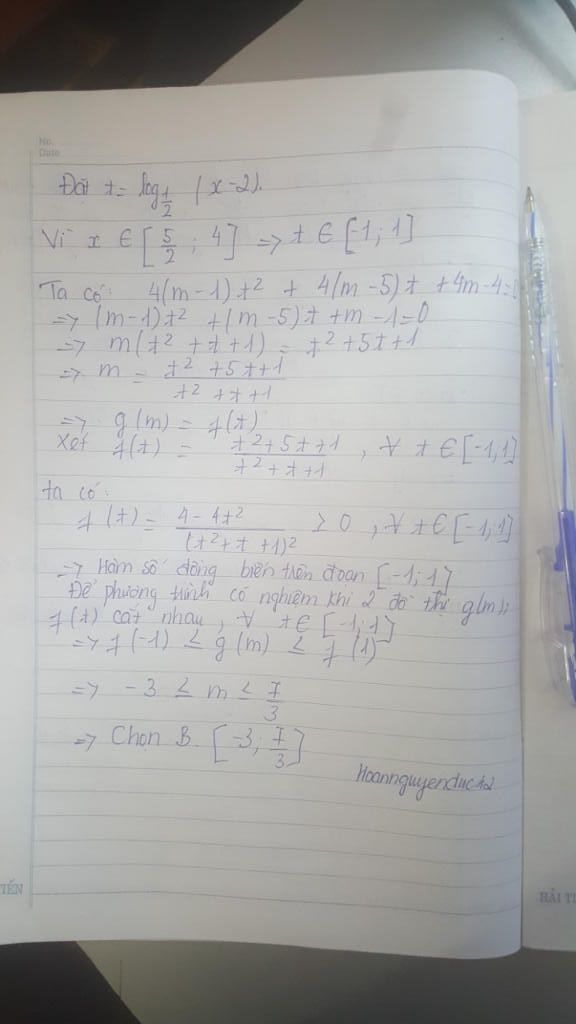 No.
Date
Đặt t = log_{1/2} (x-2).
Vì x ∈ [5/2 ; 4] => t ∈ [-1; 1]
Ta có: 4(m-1)t² + 4(m-5)t + 4m-4=0
=> (m-1)t² + (m-5)t + m-1=0
=> m(t² + t + 1) = t² + 5t + 1
=> m = (t² + 5t + 1)/(t² + t + 1)
=> g(m) = f(t)
Xét f(t) = (t² + 5t + 1)/(t² + t + 1) , ∀ t ∈ [-1;1]
ta có:
f'(t) = (4-4t²)/(t² + t + 1)² ≥ 0 , ∀ t ∈ [-1;1]
=> Hàm số đồng biến trên đoạn [-1; 1]
Để phương trình có nghiệm khi 2 đồ thị g(m),
f(t) cắt nhau, ∀ t ∈ [-1; 1]
=> f(-1) ≤ g(m) ≤ f(1)
=> -3 ≤ m ≤ 7/3
=> Chọn B. [-3; 7/3]
Hoannguyenduc42
TIẾN
HẢI TI